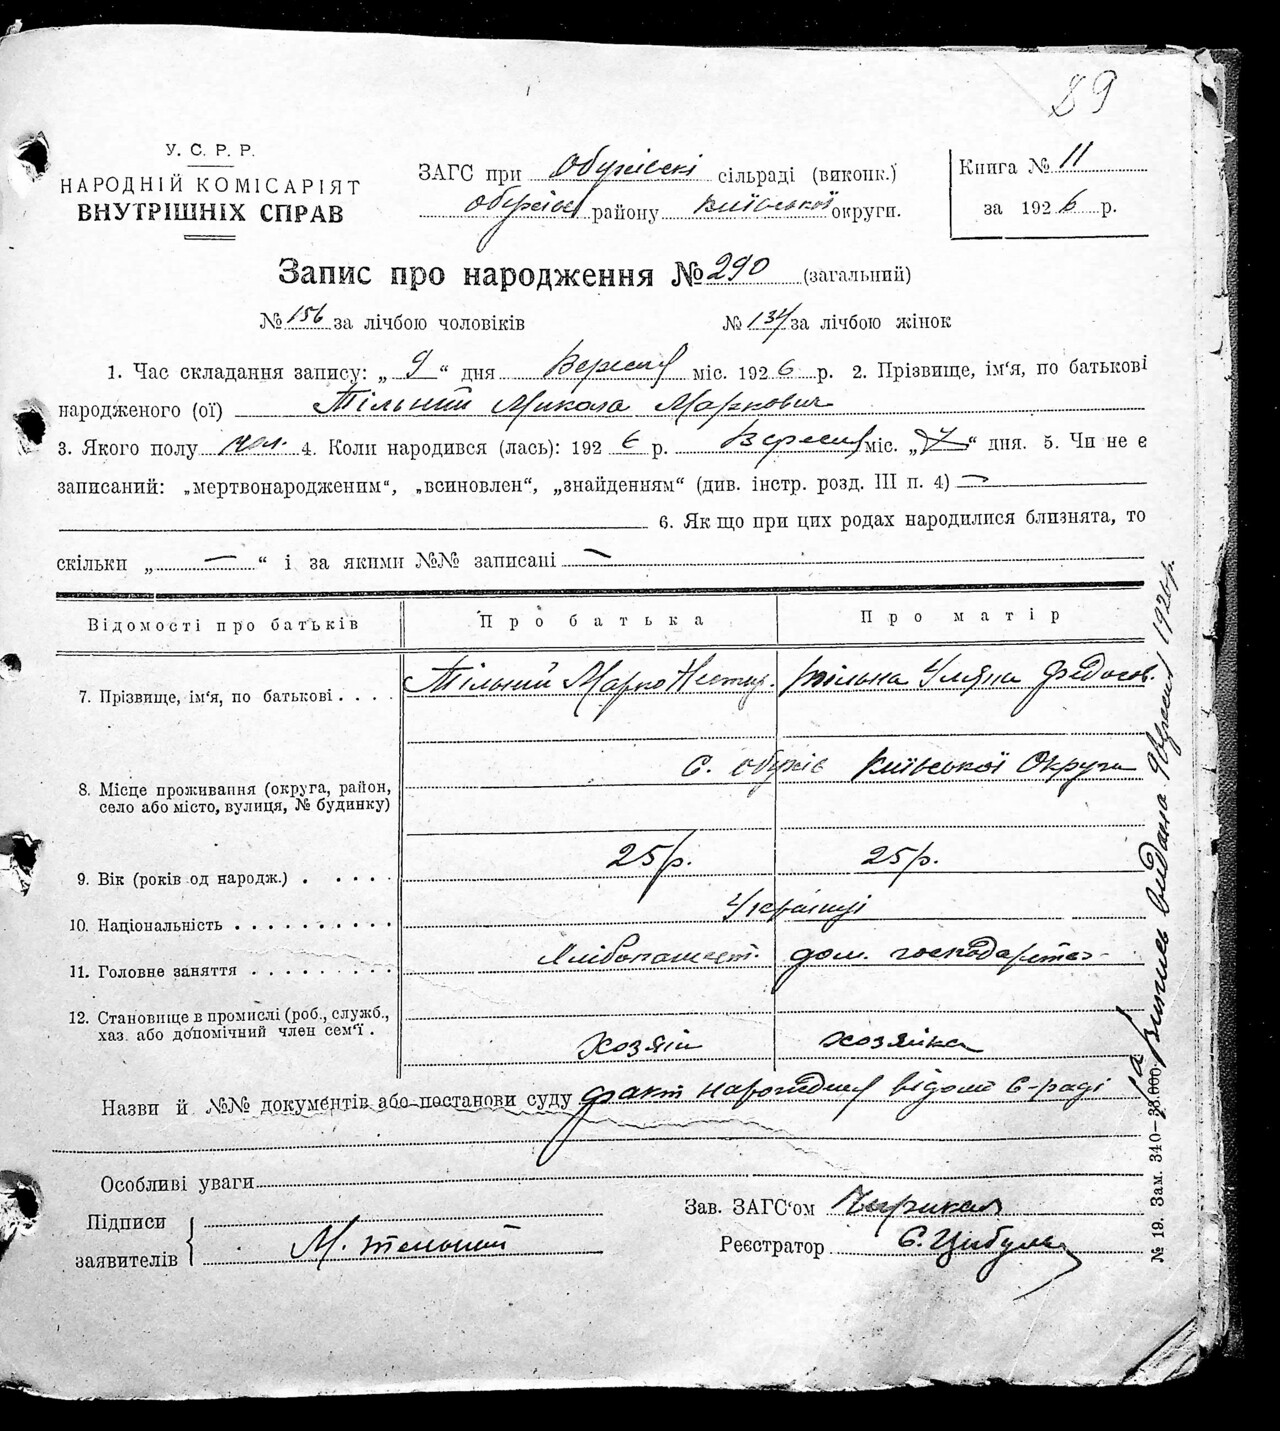 89
У. С. Р. Р.
НАРОДНІЙ КОМІСАРІЯТ
ВНУТРІШНІХ СПРАВ
ЗАГС при Обухівскі сільраді (виконк.)
Обухівс району Київської округи.
Книга № 11
за 1926 р.
Запис про народження № 290 (загальний)
№ 156 за лічбою чоловіків № 134 за лічбою жінок
1. Час складання запису: „ 9 “ дня Вересня міс. 1926 р. 2. Прізвище, ім‘я, по батькові
народженого (ої) Тільний Микола Маркович
3. Якого полу чол. 4. Коли народився (лась): 1926 р. Вересня міс. „ 7 “ дня. 5. Чи не є
записаний: „мертвонародженим“, „всиновлен“, „знайденням“ (див. інстр. розд. III п. 4) —
6. Як що при цих родах народилися близнята, то
скільки „ — “ і за якими №№ записані —
Відомості про батьків Про батька Про матір
7. Прізвище, ім‘я, по батькові . . . . Тільний Марко Нестир. Тільна Уляна Федосов.
с. Обухів Київської Округи
8. Місце проживання (округа, район,
село або місто, вулиця, № будинку)
9. Вік (років од народж.) . . . . . 25 р. 25 р.
10. Національність . . . . . . . . . . Українці
11. Головне заняття . . . . . . . . . Хлібопашест. дом. господарство
12. Становище в промислі (роб., служб.,
хаз. або допомічний член сем‘ї . Хозяін хозяйка
Назви й №№ документів або постанови суду факт народження відомі С-раді
Особливі уваги
Підписи
заявителів М. Тельний
Зав. ЗАГС‘ом
Реєстратор С. Цибуля
Витись видана 9 Вересня 1926 р.
№ 19. Зам. 340—38.000.